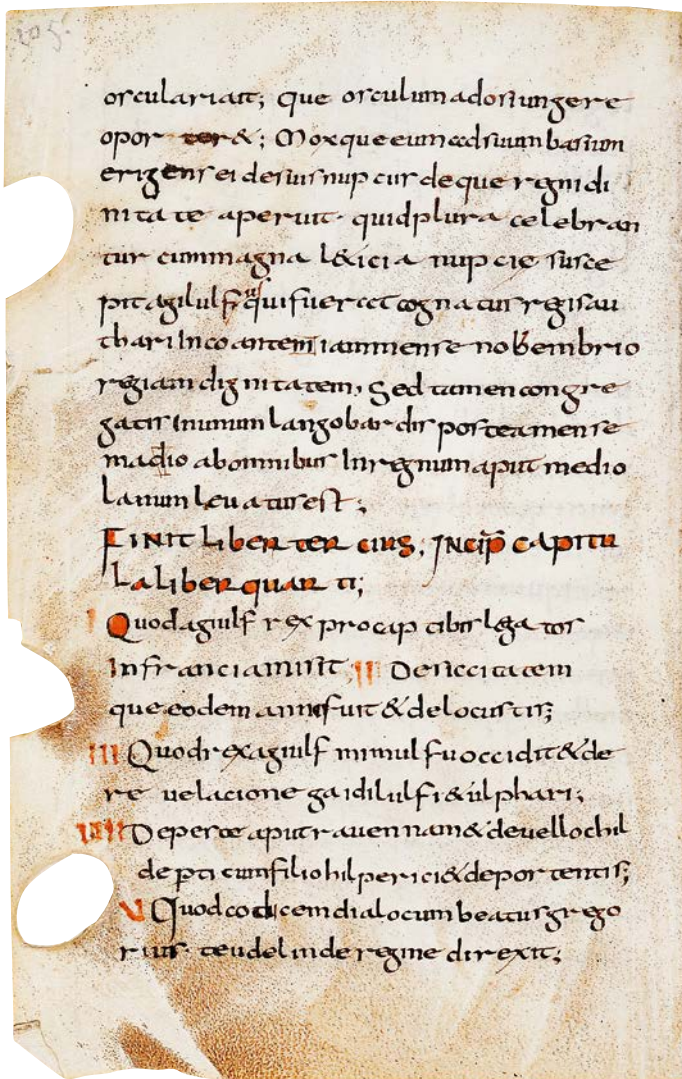 205
osculariait; que osculum ad os iungere
opor ter&; Moxque eum ad suum basium
erigens ei de suis nupciis deque regni di
nitate aperuit· quid plura celebran
tur cum magna l&icia nupcie susce
pit agilulfus qui fuerat cognatus regis au
thari Incoantem iam mense nobembrio
regiam dignitatem, Sed tamen congre
gatis Inunum langobardis postea mense
madio ab omnibus In regnum aput medio
lanum levatus est;
FINIT liber tercius; Incip̄ capitu
la liber quarti;
I Quod agiulf rex pro captibis legatos
In francia misit; II De siccitatem
que eodem anni fuit & de locustis;
III Quod rex agiulf mimulfu occidit & de
re velacione gaidilulfi & ulphari;
IIII De peste aput ravennam & de vello chil
depti cum filio hilperici & de portentis;
V Quod codicem dialocum beatus grego
rius teudelinde regine direxit;